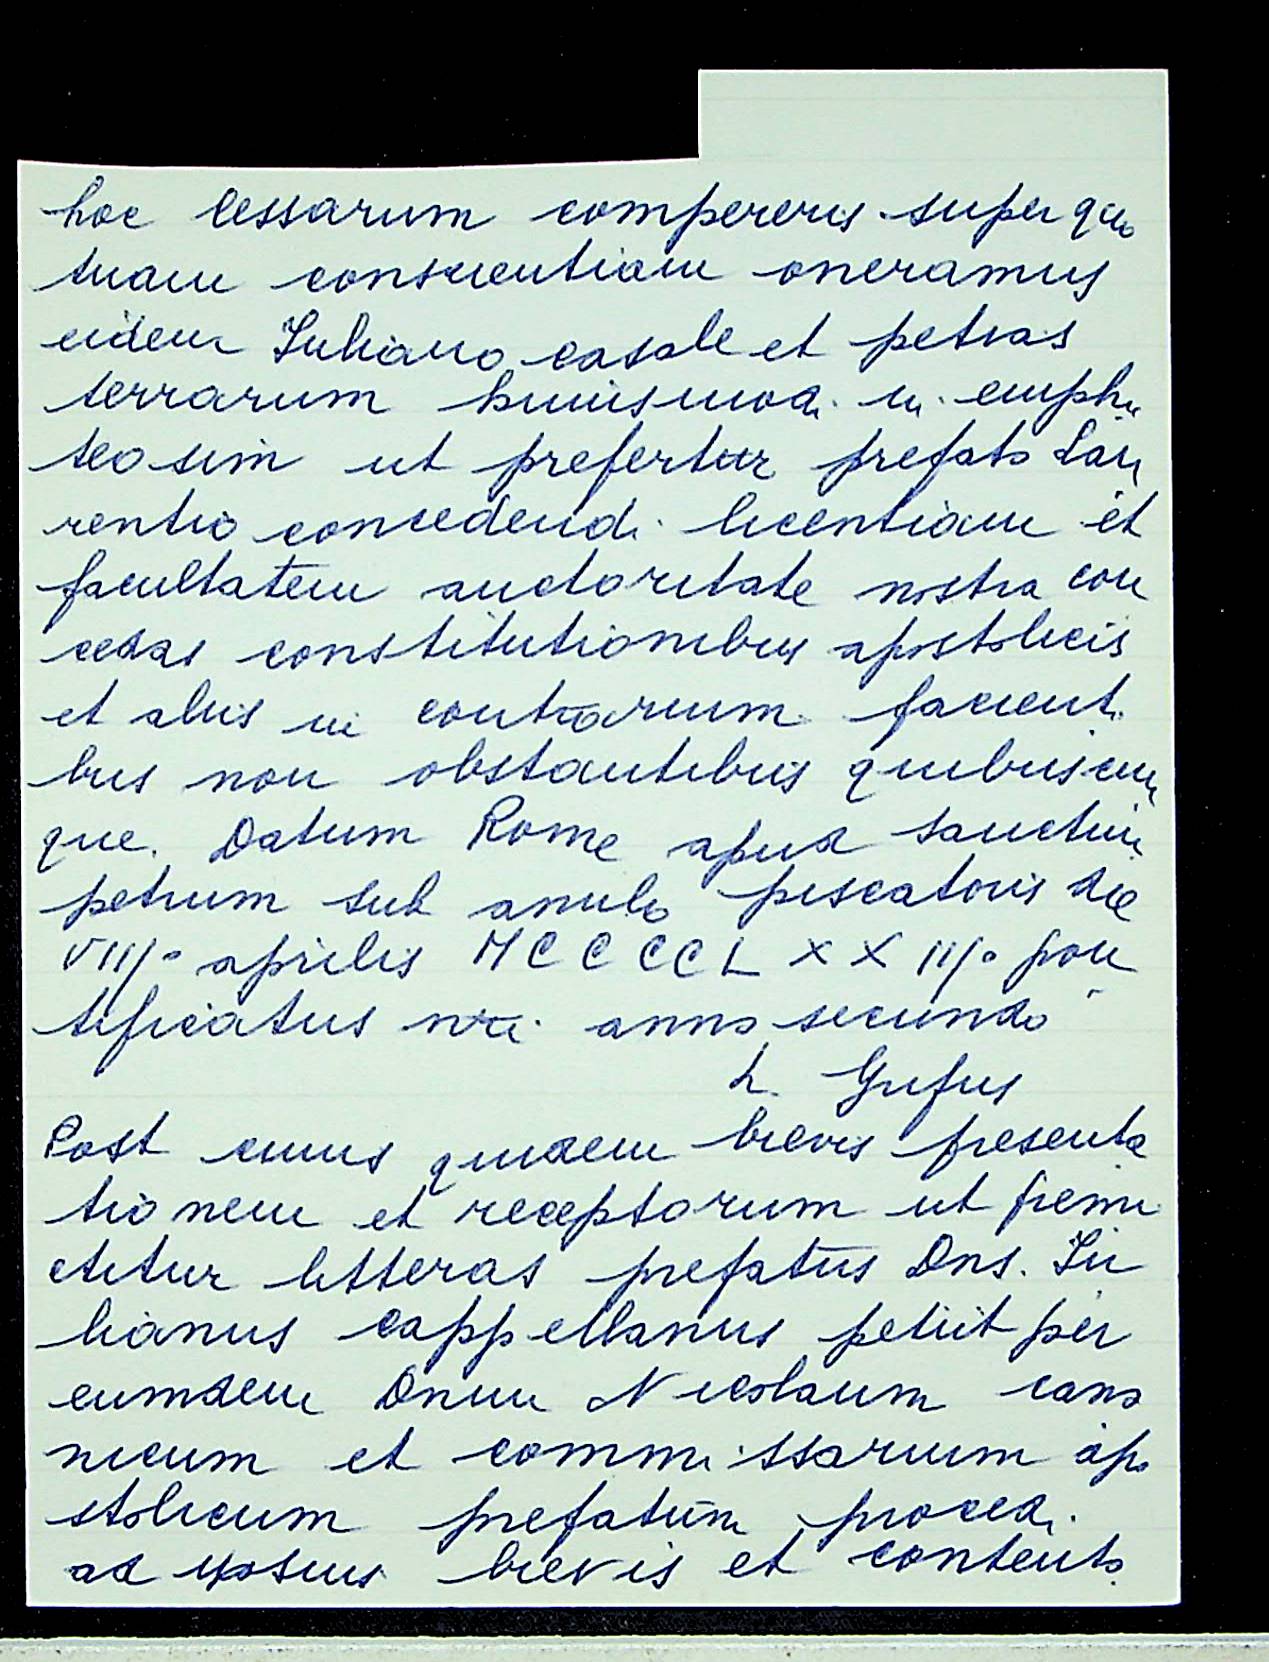 hoc cessarum compereris super quo
tuam conscientiam oneramus
eidem Juliano casale et petias
terrarum huiusmodi in emphi
teosim ut prefertur prefato Lau
rentio concedendi licentiam et
facultatem auctoritate nostra con
cedas constitutionibus apostolicis
et aliis in contrarium facienti
bus non obstantibus quibuscum
que. Datum Rome apud sanctum
petrum sub anulo piscatoris die
VIIJº aprilis MCCCCLXXIIJº pon
tificatus nri anno secundo
L. Grifus
Post cuius quidem brevis presenta
tionem et receptorum ut premi
ctitur litteras prefatus Dns. Ju
lianus cappellanus petiit per
eumdem Dnum Nicolaum cano
nicum et commissarium apo
stolicum prefatum procedi
ad ipsius brevis et contento